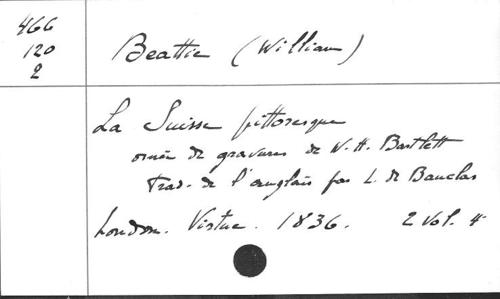 466
120
2
Beattie (William)
La Suisse pittoresque
ornée de gravures de W. H. Bartlett
Trad. de l'anglais par L. de Bauclas
London. Virtue. 1836. 2 vol. 4